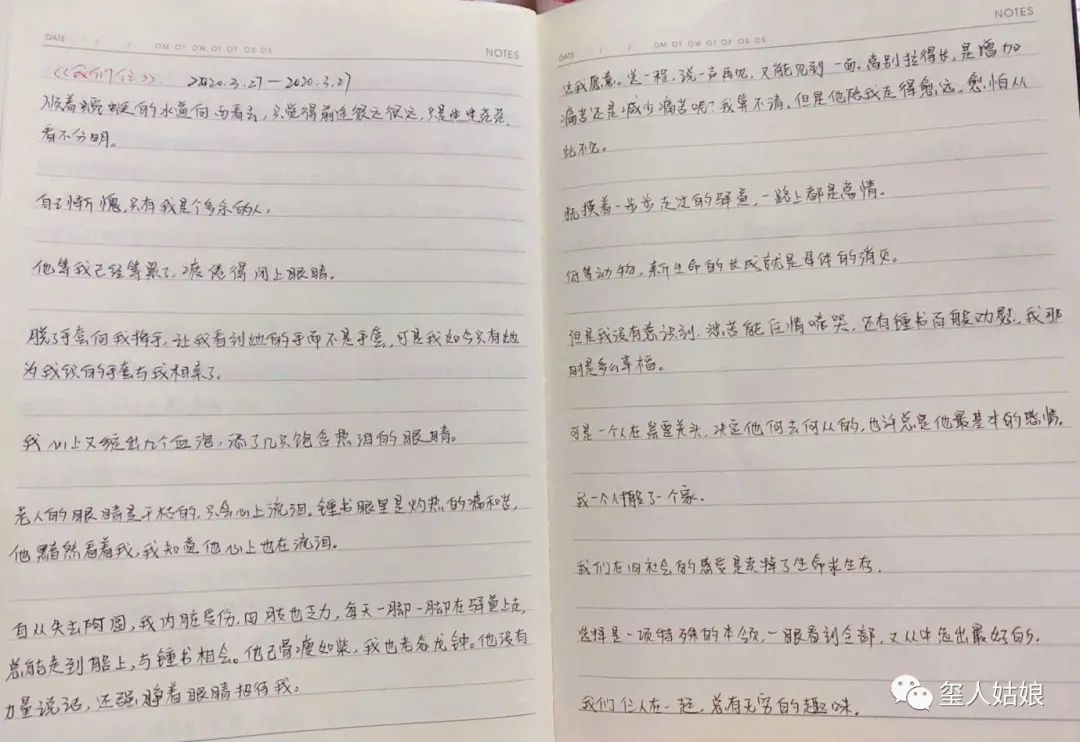 DATE / /
OM OT OW OT OF OS OS
NOTES
《我们仨》 2020.3.27—2020.3.27
顺着蜿蜒的水道向西看去,只觉得前途很远很远,只是迷迷茫茫,
看不分明。
自己惭愧,只有我是个多余的人。
他等我已经等累了,疲倦得闭上眼睛。
脱了手套向我挥手,让我看到她的手而不是手套,可是我如今只有她
为我织的手套与我相亲了。
我心上又绽出几个血泡,添了几只饱含热泪的眼睛。
老人的眼睛是干枯的,只会心上流泪。锺书眼里是灼热的痛和苦,
他黯然看着我,我知道他心上也在流泪。
自从失去阿圆,我内脏受伤,四肢也乏力,每天一脚一脚在驿道上走,
总能走到船上,与锺书相会。他已骨瘦如柴,我也老态龙钟。他没有
力量说话,还强睁着眼睛招待我。
NOTES
DATE / /
OM OT OW OT OF OS OS
这我愿意。送一程,说一声再见,又能见到一面。离别拉得长,是增加
痛苦还是减少痛苦呢?我算不清。但是他陪我走得愈远,愈怕从
此不见。
抚摸着一步步走过的驿道,一路上都是离情。
何等动物,新生命的长成就是母体的消灭。
但是我没有意识到,悲苦能任情啼哭,还有锺书百般劝慰,我那
时是多么幸福。
可是一个人在紧要关头,决定他何去何从的,也许总是他最基本的感情。
我一个人撑了一个家。
我们在旧社会的感受是卖掉了生命求生存。
选择是一项特殊的本领,一眼看到全部,又从中选出最好的。
我们仨人在一起,总有无穷的趣味。
玺人姑娘